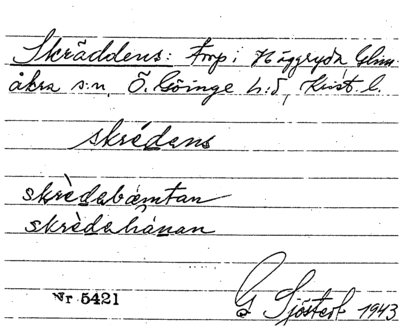 Skräddens: torp i Häggryda Glim-
åkra s:n, Ö. Göinge h:d, Krist. l.
skrédans
skrèdabæmtan
skrèdahánan
Nr 5421
G Sjöstedt 1943